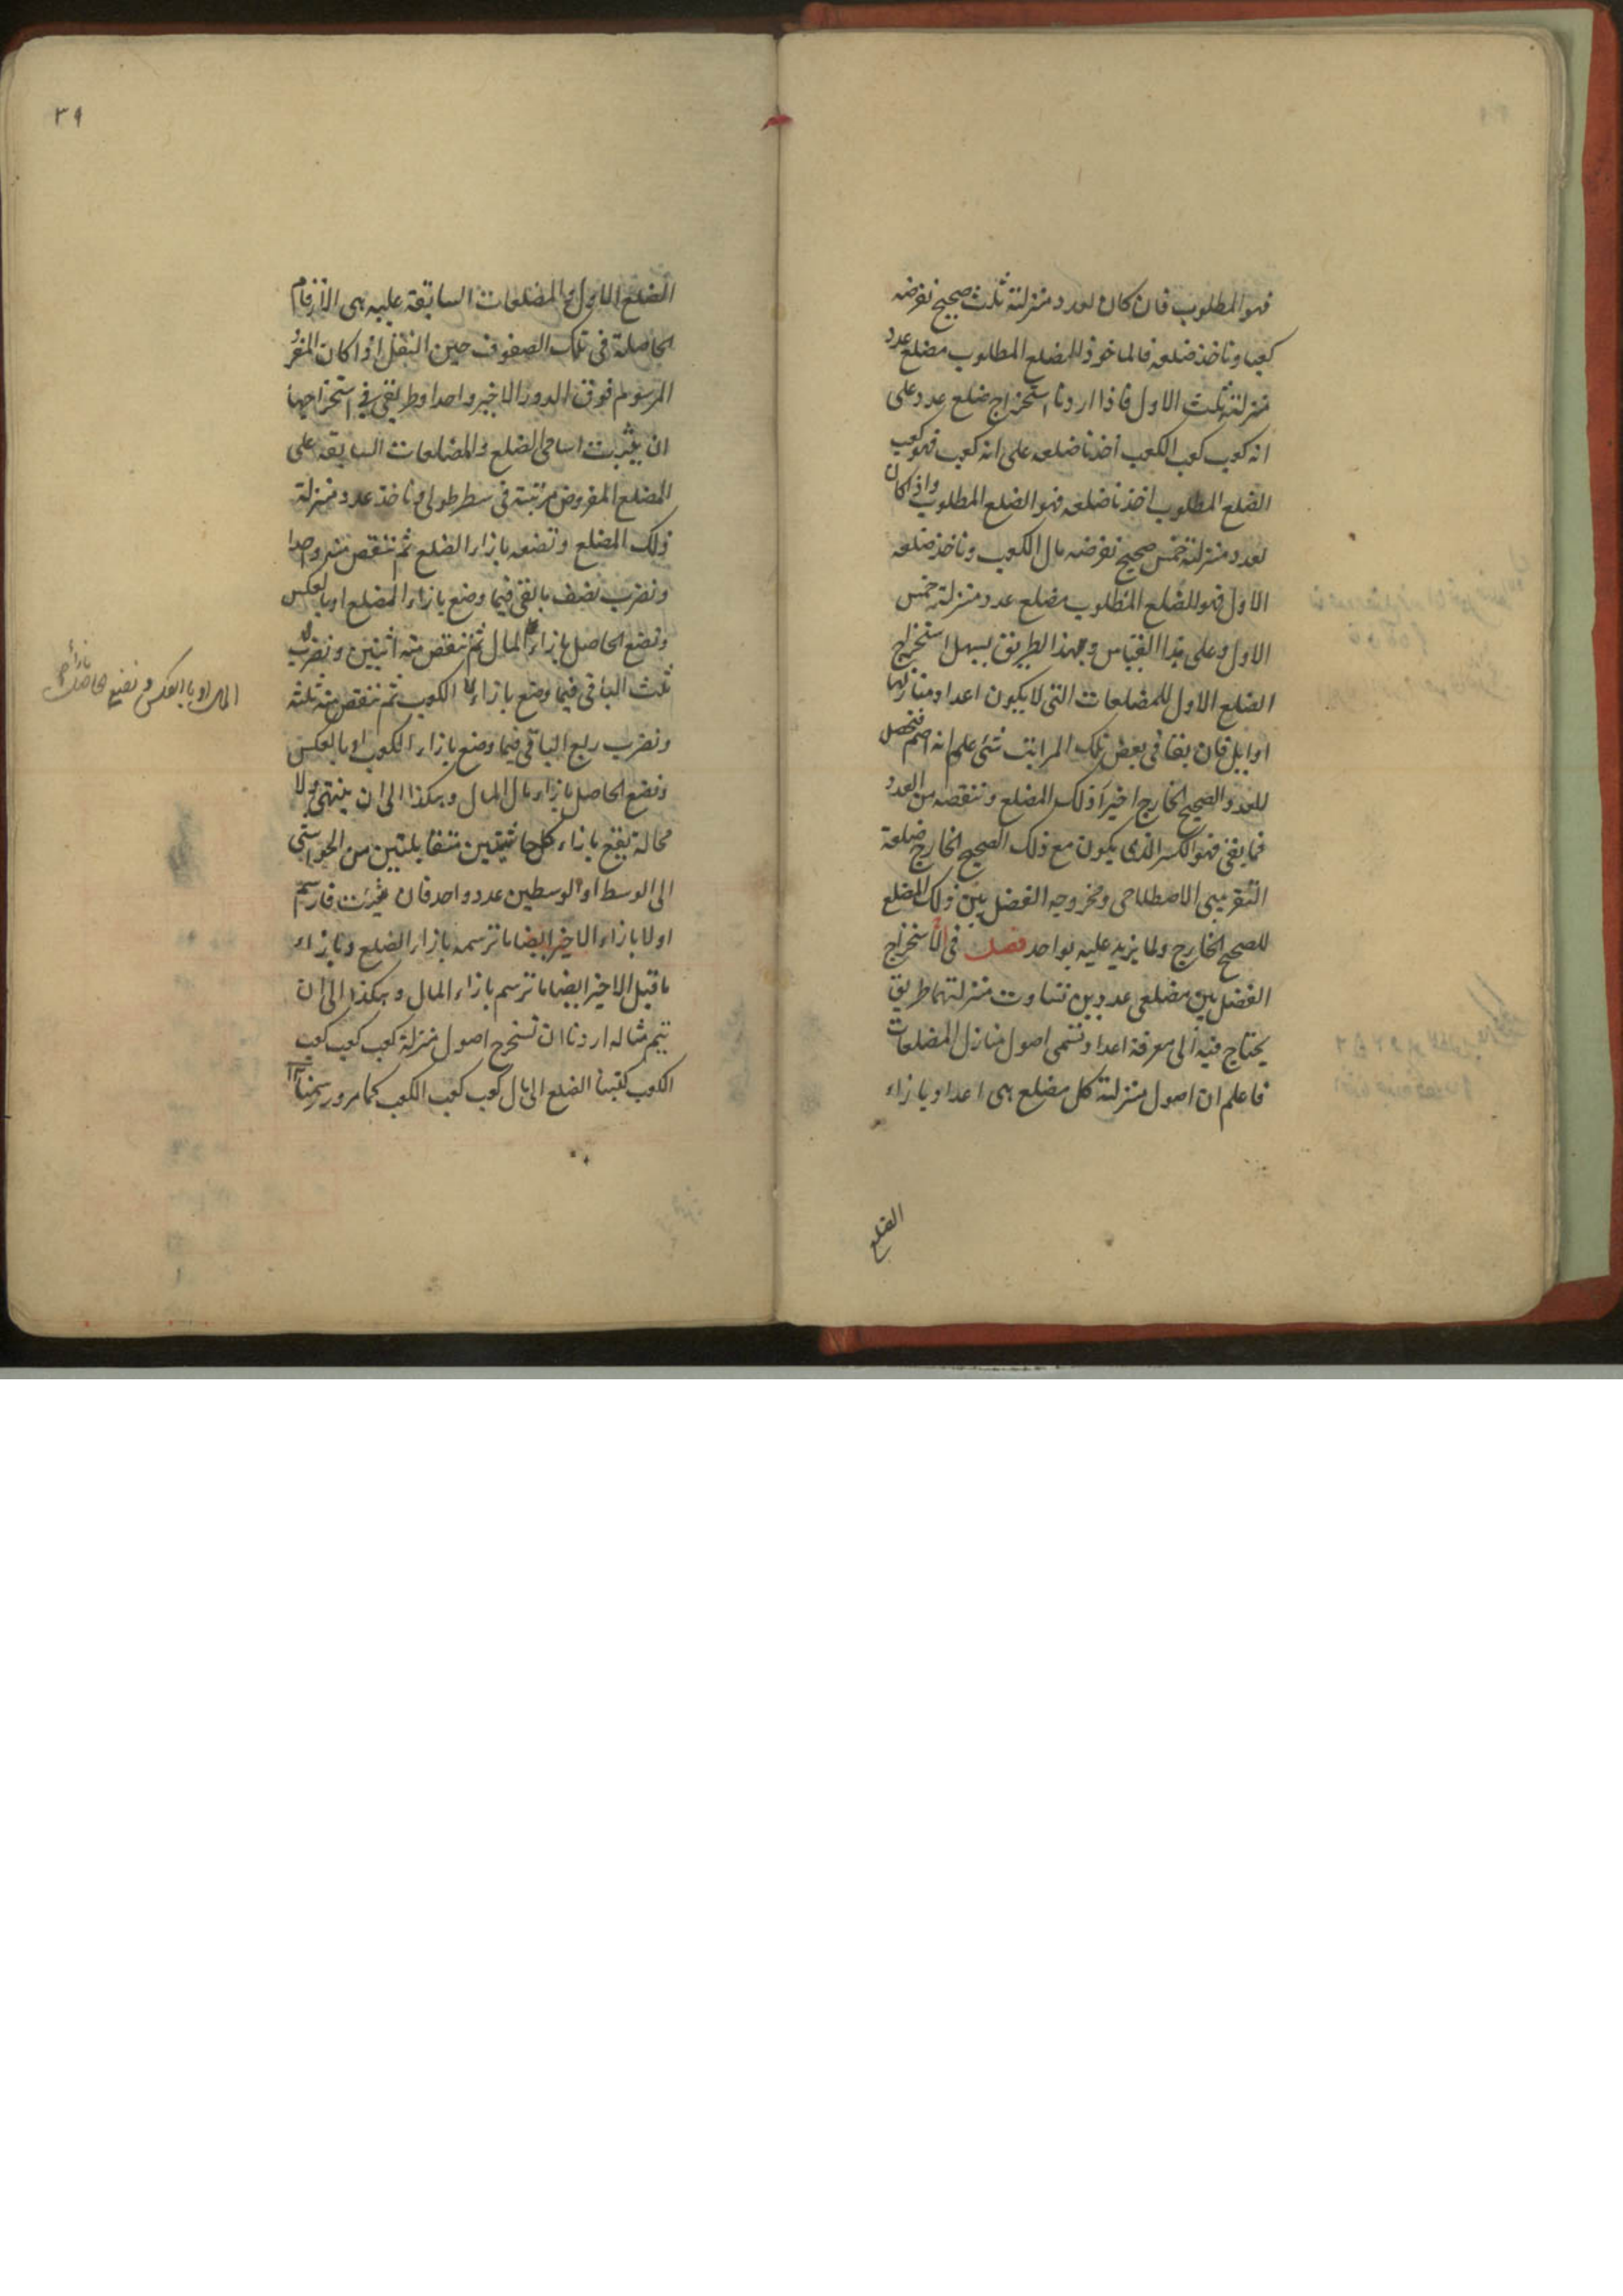 فهو المطلوب فان كان لعدد منزلته ثلث صحيح نفرضه
كعبا وناخذ ضلعه فالماخوذ للمضلع المطلوب مضلع عدد
منزلته ثلث الاول فاذا اردنا استخراج ضلع عدد على
انه كعب كعب الكعب اخذنا ضلعه على انه كعب فهو كعب
الضلع المطلوب اخذنا ضلعه فهو الضلع المطلوب واذا كان
لعدد منزلته خمس صحيح نفرضه مال الكعب وناخذ ضلعه
الاول فهو للضلع المطلوب مضلع عدد منزلته خمس
الاول وعلى هذا القياس وبهذا الطريق يسهل استخراج
الضلع الاول للمضلعات التى لا يكون اعداد منازلها
اوايل فان بقا فى بعض تلك المراتب شئ علم انه اصم فنحصل
للعدد الصحيح الخارج اخيرا ذلك المضلع وننقصه من العدد
فما بقى فهو الكسر الذى يكون مع ذلك الصحيح الخارج ضلعه
التقريبى الاصطلاحى ومخرجه الفضل بين ذلك المضلع
للصحيح الخارج ولما يزيد عليه بواحد فصل فى استخراج
الفضل بين مضلعى عددين تساوت منزلتهما طريق
يحتاج فيه الى معرفة اعداد تسمى اصول منازل المضلعات
فاعلم ان اصول منزلة كل مضلع هى اعداد بازاء
الضلع
٣٩
الضلع الاول والمضلعات السابقة عليه هى الارقام
الحاصلة فى تلك الصفوف حين النقل اذا كان المفرد
المرسوم فوق الدور الاخير واحدا وطريقى فى استخراجها
ان يثبت اسامى الضلع والمضلعات السابقه على
المضلع المفروض مرتبة فى سطر طولى وناخذ عدد منزلة
ذلك المضلع ونضعه بازاء الضلع ثم ننقص منه واحدا
ونضرب نصف ما بقى فيما وضع بازاء الضلع او بالعكس
ونضع الحاصل بازاء المال ثم ننقص منه اثنين ونضرب
ثلث الباقى فيما وضع بازاء الكعب ثم ننقص منه ثلثه
المال او بالعكس ونضع الحاصل بازاء
ونضرب ربع الباقى فيما وضع بازاء الكعب او بالعكس
ونضع الحاصل بازاء مال المال وهكذا الى ان ينتهى ولا
محالة يقع بازاء كل حاشيتين متقابلتين من الحواشى
الى الوسط او الوسطين عدد واحد فان شئت فارسم
اولا بازاء الاخير ايضا ما ترسمه بازاء الضلع وبازاء
ما قبل الاخير ايضا ما ترسم بازاء المال وهكذا الى ان
يتم مثاله اردنا ان نستخرج اصول منزلة كعب كعب كعب
الكعب كتبنا الضلع الى مال كعب كعب الكعب كما مر ورسمنا